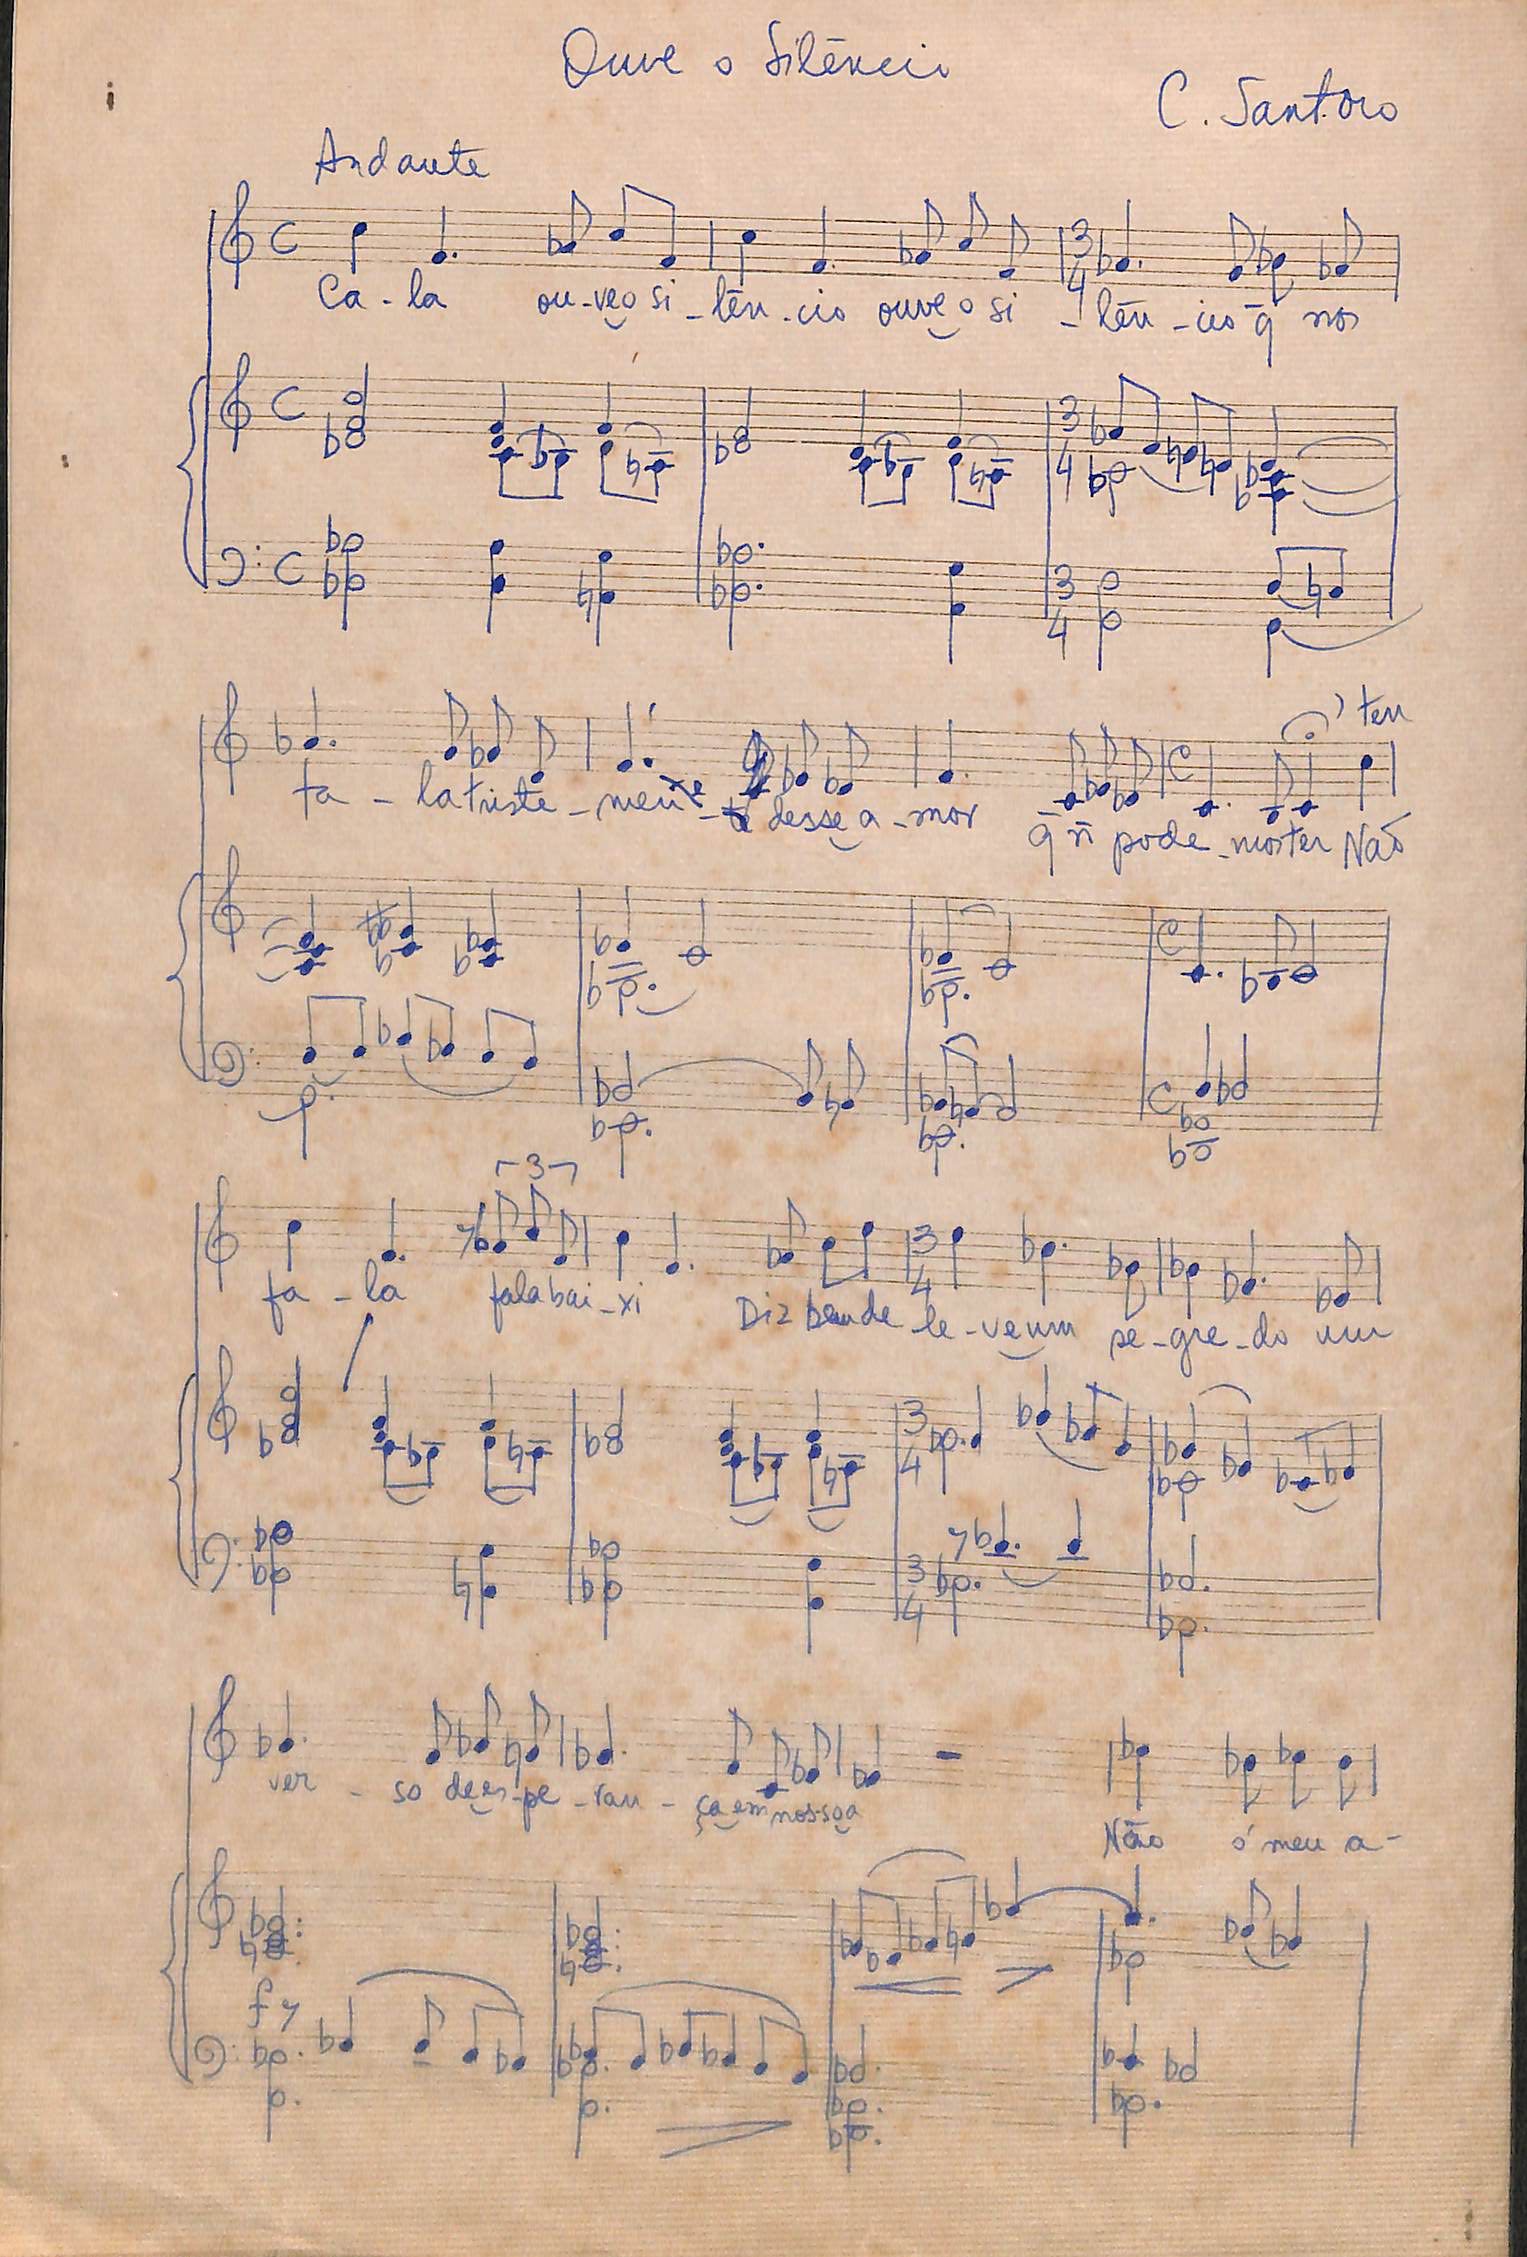 Ouve o Silêncio
C. Santoro
Andante
Ca - la ou-ve o si - lên - cio ouve o si - lên - cio q̄ nos
fa - la triste - men - te desse a - mor q̄ ñ pode - mos ter Não
ten
3
fa - la fala bai - xi Diz bem de le - ve um se - gre - do um
ver - so de es - pe - ran - ça em nos - so a
Não ó meu a -
f